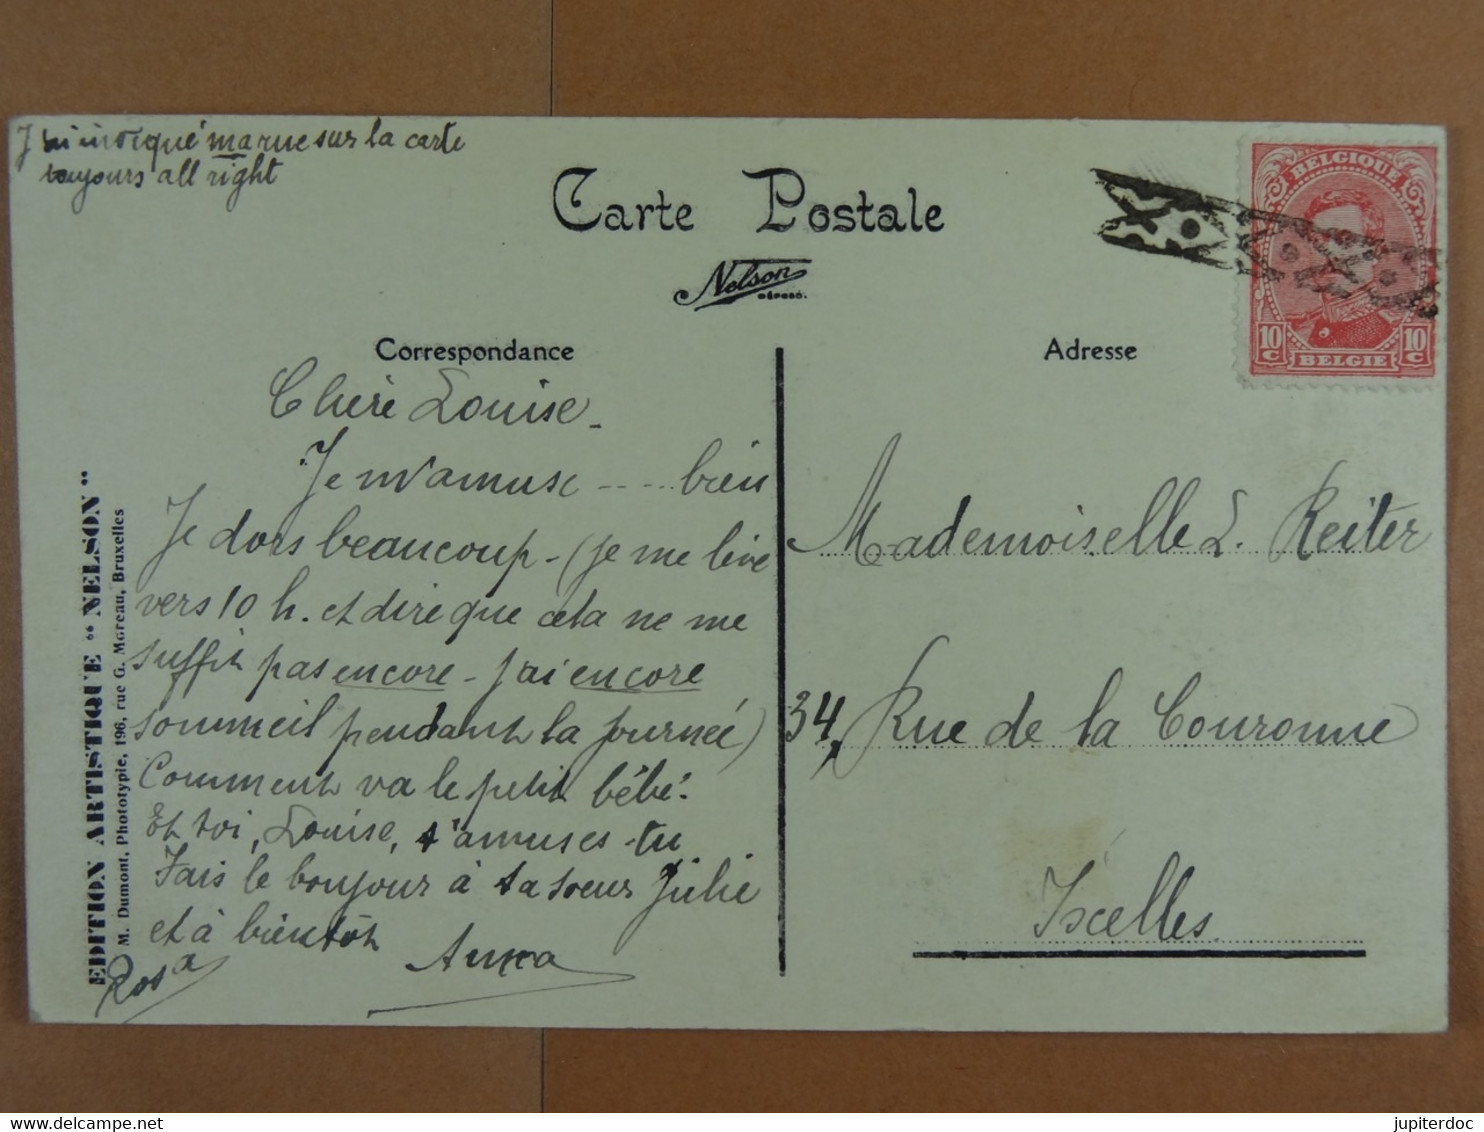 marque marue sur la carte
toujours all right
Carte Postale
Nelson
DÉPOSÉ.
BELGIQUE
10 c
10 c
BELGIE
Correspondance
Adresse
Chère Louise -
Je m'amuse -- ... bien
Je dors beaucoup - (je me lève
vers 10 h. et dire que cela ne me
suffit pas encore - j'ai encore
sommeil pendant la journée)
Comment va le petit bébé.
Et toi, Louise, t'amuses-tu
Fais le bonjour à ta soeur Julie
et à bientôt
Rosa
Anna
Mademoiselle L. Reiter
34, Rue de la Couronne
Ixelles
EDITION ARTISTIQUE "NELSON"
M. Dumont, Phototypie, 196, rue G. Moreau, Bruxelles
delcampe.net
jupiterdoc